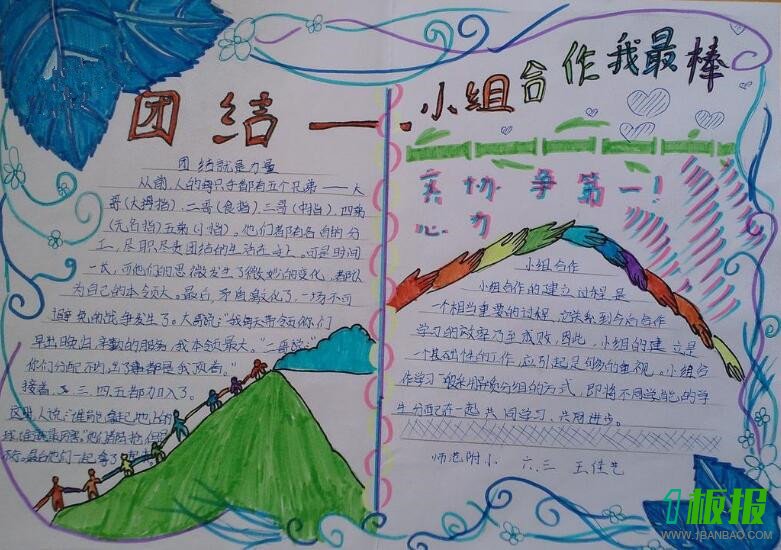 团结——小组合作我最棒
团结就是力量
从前,人的每只手都有五个兄弟——大
哥(大拇指),二哥(食指),三哥(中指),四弟
(无名指)五弟(小指)。他们都有各自的分
工,尽职尽责团结的生活在一起。可是时间
一长,而他们的思微发生了微妙的变化,都认
为自己的本领大。最后,矛盾激化了,一场不可
避免的战争发生了。大哥说:“我每天带领你们
早出晚归,辛勤的服务,我本领最大。”二哥说:“
你们分配不均,出了事都是我顶着。”
接着,三、四、五都加入了。
这时人说:谁能拿起地上的
球,谁就最厉害。”他们都
最后他们一起拿了
齐心协力争第一!
小组合作
小组合作的建立过程是
一个相当重要的过程,它关系到今后合作
学习的效率乃至成败,因此,小组的建立是
一个基础性的工作,应引起足够的重视。小组合
作学习一般采用异质分组的方式,即将不同学能的学
生分配在一起共同学习、共同进步。
师范附小 六.三 王佳艺
板报
WWW.JBANBAO.COM